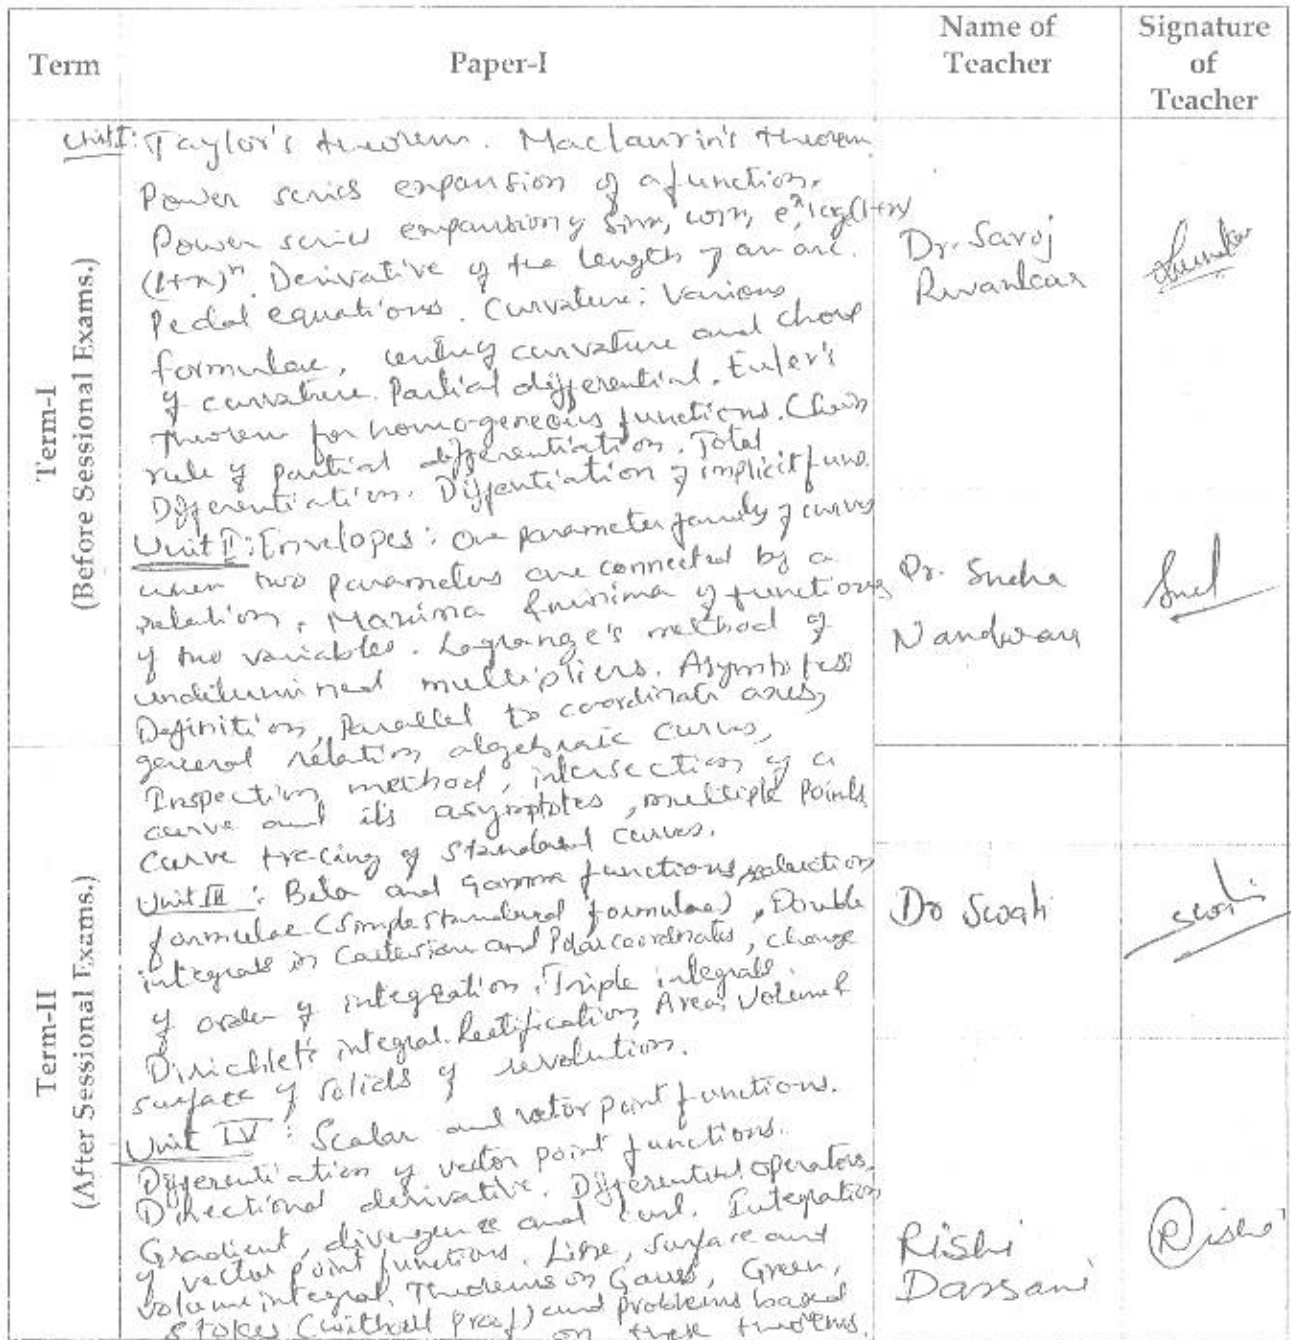 Term
Paper-I
Name of
Teacher
Signature
of
Teacher
Term-I
(Before Sessional Exams.)
Unit I: Taylor's theorem. Maclaurin's theorem
Power series expansion of a function.
Power series expansion of sinx, cosx, e^x, log(1+x)
(1+x)^n. Derivative of the length of an arc.
Pedal equations. Curvature: Various
formulae, centre of curvature and chord
of curvature. Partial differential. Euler's
theorem for homogeneous functions. Chain
rule of partial differentiation. Total
Differentiation. Diffentiation of implicit func.
Unit II: Envelopes: One parameter family of curves
when two parameters are connected by a
relation. Maxima & minima of functions
of two variables. Lagrange's method of
undetermined multipliers. Asymptotes
Definition, Parallel to coordinate axes,
general relation algebraic curves,
Inspection method, intersection of a
curve and its asymptotes, multiple points
curve tracing of standard curves.
Dr. Saroj
Dr. Sneha
Snel
Term-II
(After Sessional Exams.)
Unit III: Beta and Gamma functions, reduction
formulae (simple standard formulae), Double
integrals in Cartesian and Polar coordinates, change
of order of integration. Triple integrals.
Dirichlet's integral. Rectification, Area, Volume &
surface of solids of revolution.
Unit IV: Scalar and vector point functions.
Differentiation of vector point functions.
Directional derivative. Differential operators.
Gradient, divergence and curl. Integration
of vector point functions. Line, surface and
volume integral. Theorems on Gauss, Green,
Stokes (without proof) and problems based
on these theorems.
Dr Swati
Swati
Rishi
Dassani
Rishi